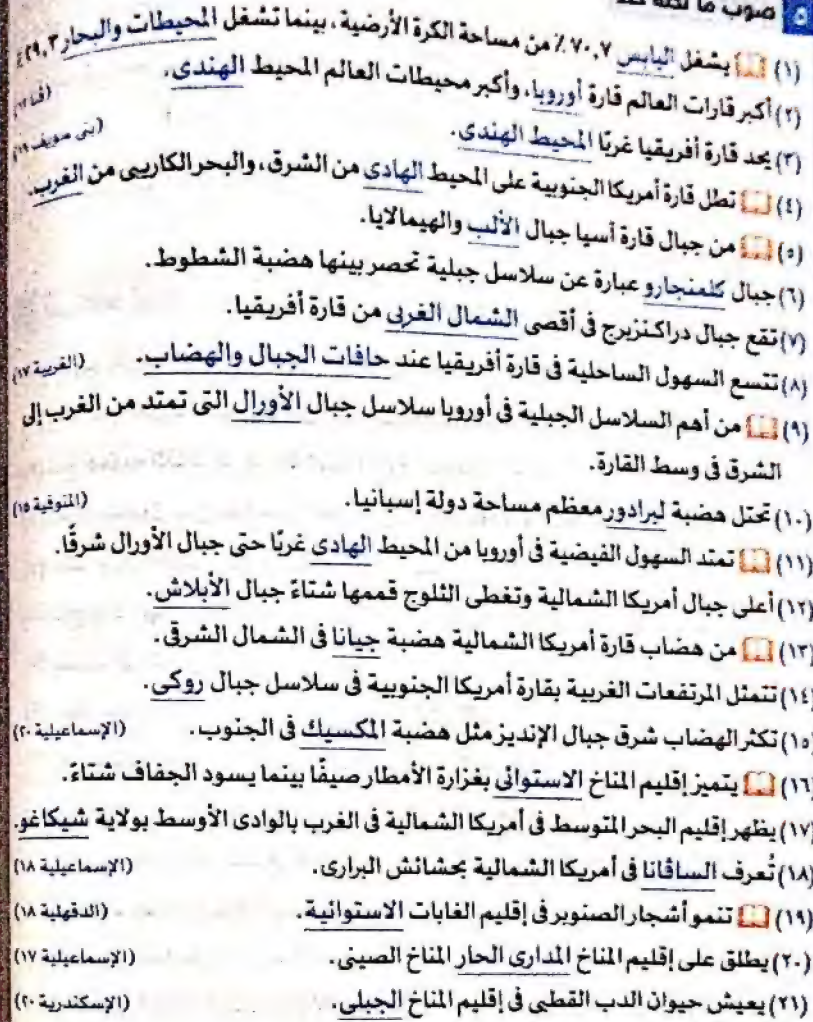 ٥ صوب ما
(١) يشغل اليابس ٧٠,٧٪ من مساحة الكرة الأرضية، بينما تشغل المحيطات والبحار ٢٩,٣٪
(٢) أكبر قارات العالم قارة أوروبا، وأكبر محيطات العالم المحيط الهندى.
(٣) يحد قارة أفريقيا غربًا المحيط الهندى. (بنى سويف ١٩)
(٤) تطل قارة أمريكا الجنوبية على المحيط الهادى من الشرق، والبحر الكاريبى من الغرب.
(٥) من جبال قارة أسيا جبال الألب والهيمالايا.
(٦) جبال كلمنجارو عبارة عن سلاسل جبلية تحصر بينها هضبة الشطوط.
(٧) تقع جبال دراكنزبرج فى أقصى الشمال الغربى من قارة أفريقيا.
(٨) تتسع السهول الساحلية فى قارة أفريقيا عند حافات الجبال والهضاب. (الغربية ١٧)
(٩) من أهم السلاسل الجبلية فى أوروبا سلاسل جبال الأورال التى تمتد من الغرب إلى
الشرق فى وسط القارة.
(١٠) تحتل هضبة لبرادور معظم مساحة دولة إسبانيا. (المنوفية ١٥)
(١١) تمتد السهول الفيضية فى أوروبا من المحيط الهادى غربًا حتى جبال الأورال شرقًا.
(١٢) أعلى جبال أمريكا الشمالية وتغطى الثلوج قممها شتاءً جبال الأبلاش.
(١٣) من هضاب قارة أمريكا الشمالية هضبة جيانا فى الشمال الشرقى.
(١٤) تتمثل المرتفعات الغربية بقارة أمريكا الجنوبية فى سلاسل جبال روكى.
(١٥) تكثر الهضاب شرق جبال الإنديز مثل هضبة المكسيك فى الجنوب. (الإسماعيلية ٢٠)
(١٦) يتميز إقليم المناخ الاستوائى بغزارة الأمطار صيفًا بينما يسود الجفاف شتاءً.
(١٧) يظهر إقليم البحر المتوسط فى أمريكا الشمالية فى الغرب بالوادى الأوسط بولاية شيكاغو.
(١٨) تُعرف الساڤانا فى أمريكا الشمالية بحشائش البرارى. (الإسماعيلية ١٨)
(١٩) تنمو أشجار الصنوبر فى إقليم الغابات الاستوائية. (الدقهلية ١٨)
(٢٠) يطلق على إقليم المناخ المدارى الحار المناخ الصينى. (الإسماعيلية ١٧)
(٢١) يعيش حيوان الدب القطبى فى إقليم المناخ الجبلى. (الإسكندرية ٢٠)